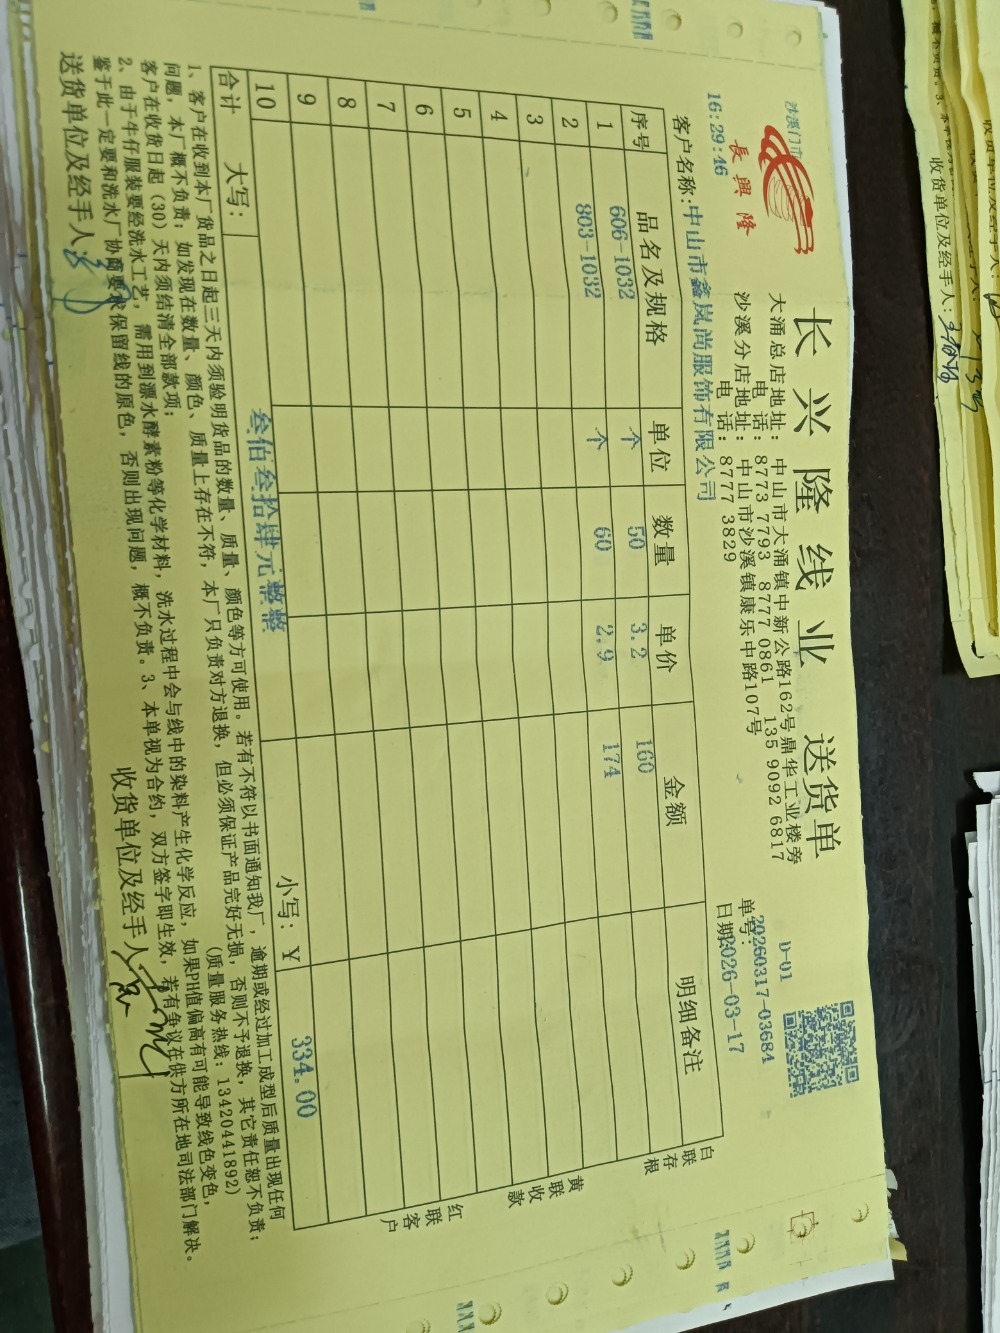 沙溪门市
長興隆
16:29:46
长兴隆线业 送货单
大涌总店地址: 中山市大涌镇中新公路162号鼎华工业楼旁
电 话: 8773 7793 8777 0861 135 9092 6817
沙溪分店地址: 中山市沙溪镇康乐中路107号
电 话: 8777 3829
D-01
单号: 20260317-03684
日期: 2026-03-17
客户名称: 中山市鑫岚尚服饰有限公司
序号 品名及规格 单位 数量 单价 金额 明细备注
1 606-1032 个 50 3.2 160
2 803-1032 个 60 2.9 174
3
4
5
6
7
8
9
10
合计 大写: 叁佰叁拾肆元整整 小写: ¥ 334.00
白联存根
黄联收款
红联客户
1、客户在收到本厂货品之日起三天内须验明货品的数量、质量、颜色等方可使用。若有不符以书面通知我厂,逾期或经过加工成型后质量出现任何
问题,本厂概不负责;如发现在数量、颜色、质量上存在不符,本厂只负责对方退换,但必须保证产品完好无损,否则不予退换,其它责任恕不负责;
客户在收货日起(30)天内须结清全部款项; (质量服务热线: 13420441892)
2、由于牛仔服装要经洗水工艺,需用到漂水酵素粉等化学材料,洗水过程中会与线中的染料产生化学反应,如果PH值偏高有可能导致线色变色,
鉴于此一定要和洗水厂协商要求保留线的原色,否则出现问题,概不负责。3、本单视为合约,双方签字即生效,若有争议在供方所在地司法部门解决。
送货单位及经手人: 收货单位及经手人:
收货单位及经手人: